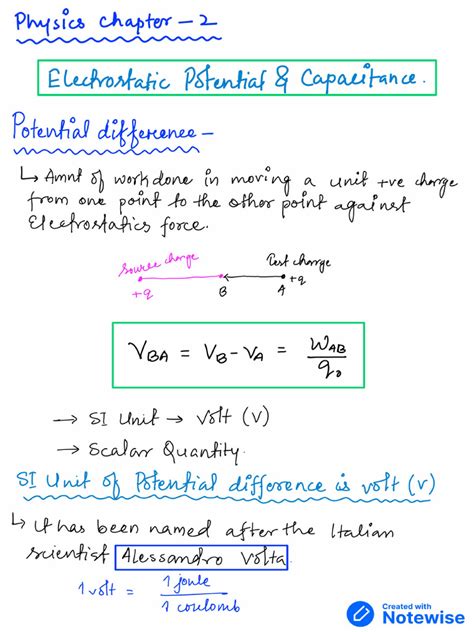 Physics chapter – 2
Electrostatic Potential & Capacitance.
Potential difference –
↳ Amnt of work done in moving a unit +ve charge
from one point to the other point against
Electrostatics force.
Source charge Test charge
+q B A +q
V_BA = V_B - V_A = W_AB / q₀
→ SI Unit → Volt (V)
→ Scalarr Quantity.
SI Unit of Potential difference is volt (v)
↳ It has been named after the Italian
scientist Alessandro Volta.
1 volt = 1 joule / 1 coulomb
Created with
Notewise